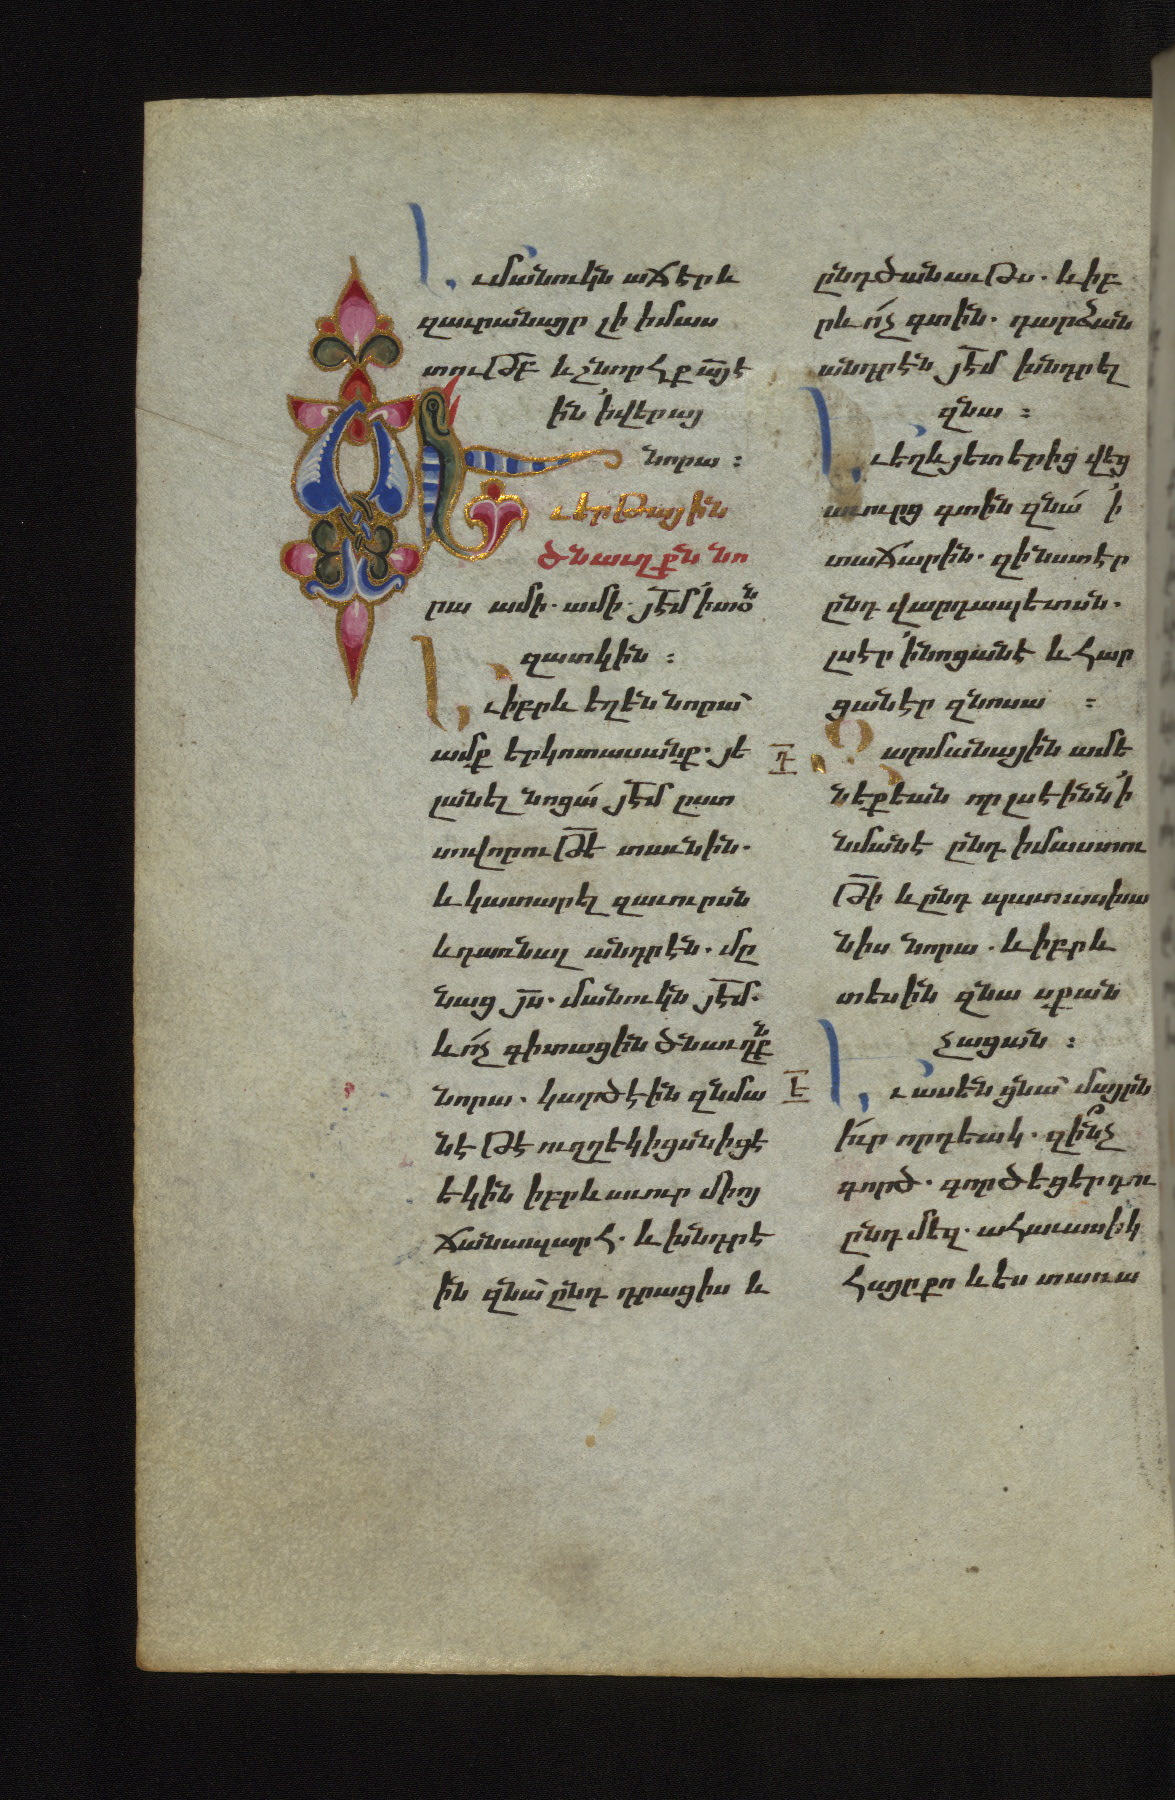 Եւ մանուկն աճէր և
զաւրանայր լի իմաս
տութբ և շնորհք այ է
ին ՛ի վերայ
նորա :
Եւ երթային
ծնաւղքն նո
րա ամի . ամի . յէմ ՛ի տօն
զատկին :
Եւ իբրև եղեն նորա
ամք երկոտասանք . յե
լանել նոցա յէմ ըստ
սովորութե տաւնին .
և կատարել զաւուրսն
և դառնալ անդրէն . մը
նաց յս . մանուկն յէմ .
և ոչ գիտացին ծնաւղքն
նորա . կարծէին զնմա
նէ թէ ուղղեկիցսն իցէ
եկին իբրև աւուր միոյ
ճանապարհ . և խնդրէ
ին զնա ընդ դրացիս և
ընդ ծանաւթս . և իբ
րև ոչ գտին . դարձան
անդրէն յէմ խնդրել
զնա :
Եւ եղև յետ երից վեց
աւուրց գտին զնա ՛ի
տաճարին . զի նստէր
ընդ վարդապետսն .
լսէր ՛ի նոցանէ և հար
ցանէր զնոսա :
Դ
Զարմանային ամե
նեքեան որ լսէինն ՛ի
նմանէ ընդ իմաստու
թի և ընդ պատասխա
նիս նորա . և իբրև
տեսին զնա սքան
չացան :
Ե
Եւ ասէ ցնա մայրն
իւր որդեակ . զինչ
գործ . գործեցեր դու
ընդ մեզ . ահաւասիկ
հայր քո և ես տառա